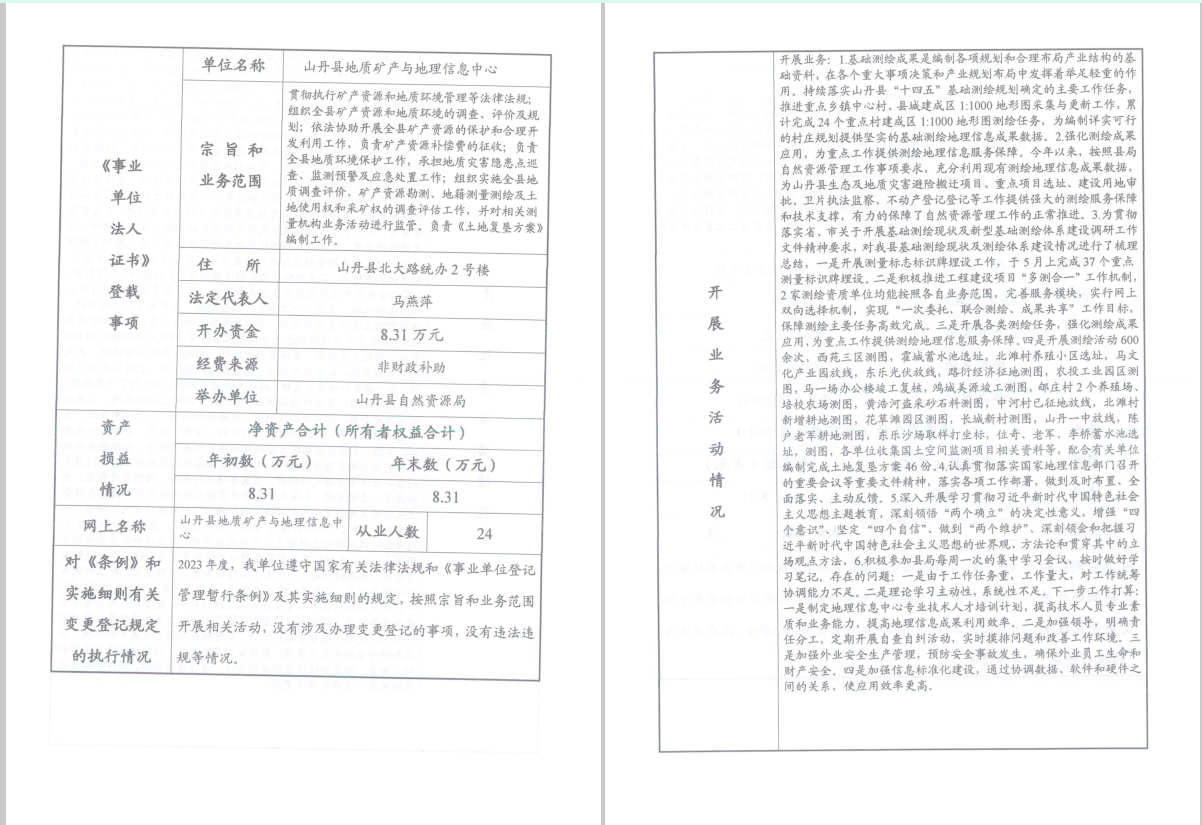 《事业
单位
法人
证书》
登载
事项
单位名称
山丹县地质矿产与地理信息中心
宗旨和
业务范围
贯彻执行矿产资源和地质环境管理等法律法规；
组织全县矿产资源和地质环境的调查、评价及规
划；依法协助开展全县矿产资源的保护和合理开
发利用工作，负责矿产资源补偿费的征收；负责
全县地质环境保护工作，承担地质灾害隐患点巡
查、监测预警及应急处置工作；组织实施全县地
质调查评价、矿产资源勘测、地籍测量测绘及土
地使用权和采矿权的调查评估工作，并对相关测
量机构业务活动进行监管。负责《土地复垦方案》
编制工作。
住 所
山丹县北大路统办2号楼
法定代表人
马燕萍
开办资金
8.31万元
经费来源
非财政补助
举办单位
山丹县自然资源局
资产
损益
情况
净资产合计（所有者权益合计）
年初数（万元）
年末数（万元）
8.31
8.31
网上名称
山丹县地质矿产与地理信息中
心
从业人数
24
对《条例》和
实施细则有关
变更登记规定
的执行情况
2023年度，我单位遵守国家有关法律法规和《事业单位登记
管理暂行条例》及其实施细则的规定，按照宗旨和业务范围
开展相关活动，没有涉及办理变更登记的事项，没有违法违
规等情况。
开
展
业
务
活
动
情
况
开展业务：1.基础测绘成果是编制各项规划和合理布局产业结构的基
础资料，在各个重大事项决策和产业规划布局中发挥着举足轻重的作
用。持续落实山丹县“十四五”基础测绘规划确定的主要工作任务，
推进重点乡镇中心村、县城建成区1:1000地形图采集与更新工作，累
计完成24个重点村建成区1:1000地形图测绘任务，为编制详实可行
的村庄规划提供坚实的基础测绘地理信息成果数据。2.强化测绘成果
应用，为重点工作提供测绘地理信息服务保障。今年以来，按照县局
自然资源管理工作事项要求，充分利用现有测绘地理信息成果数据，
为山丹县生态及地质灾害避险搬迁项目、重点项目选址、建设用地审
批、卫片执法监察、不动产登记登记等工作提供强大的测绘服务保障
和技术支撑，有力的保障了自然资源管理工作的正常推进。3.为贯彻
落实省、市关于开展基础测绘现状及新型基础测绘体系建设调研工作
文件精神要求，对我县基础测绘现状及测绘体系建设情况进行了梳理
总结，一是开展测量标志标识牌埋设工作，于5月上完成37个重点
测量标识牌埋设。二是积极推进工程建设项目“多测合一”工作机制，
2家测绘资质单位均能按照各自业务范围，完善服务模块，实行网上
双向选择机制，实现“一次委托、联合测绘、成果共享”工作目标，
保障测绘主要任务高效完成。三是开展各类测绘任务，强化测绘成果
应用，为重点工作提供测绘地理信息服务保障。四是开展测绘活动600
余次，西苑三区测图，霍城蓄水池选址，北滩村养殖小区选址，马文
化产业园放线，东乐光伏放线，路衍经济征地测图，农投工业园区测
图，马一场办公楼竣工复核，鸿城美源竣工测图，邰庄村2个养殖场、
培校农场测图，黄浩河益采砂石料测图，中河村已征地放线，北滩村
新增耕地测图，花草滩园区测图，长城新村测图，山丹一中放线，陈
户老军耕地测图，东乐沙场取样打坐标，位奇、老军、李桥蓄水池选
址，测图，各单位收集国土空间监测项目相关资料等，配合有关单位
编制完成土地复垦方案46份。4.认真贯彻落实国家地理信息部门召开
的重要会议等重要文件精神，落实各项工作部署，做到及时布置、全
面落实、主动反馈。5.深入开展学习贯彻习近平新时代中国特色社会
主义思想主题教育，深刻领悟“两个确立”的决定性意义，增强“四
个意识”、坚定“四个自信”、做到“两个维护”、深刻领会和把握习
近平新时代中国特色社会主义思想的世界观、方法论和贯穿其中的立
场观点方法，6.积极参加县局每周一次的集中学习会议，按时做好学
习笔记。存在的问题：一是由于工作任务重，工作量大，对工作统筹
协调能力不足。二是理论学习主动性、系统性不足。下一步工作打算：
一是制定地理信息中心专业技术人才培训计划，提高技术人员专业素
质和业务能力，提高地理信息成果利用效率。二是加强领导，明确责
任分工，定期开展自查自纠活动，实时摸排问题和改善工作环境。三
是加强外业安全生产管理，预防安全事故发生，确保外业员工生命和
财产安全。四是加强信息标准化建设，通过协调数据、软件和硬件之
间的关系，使应用效率更高。